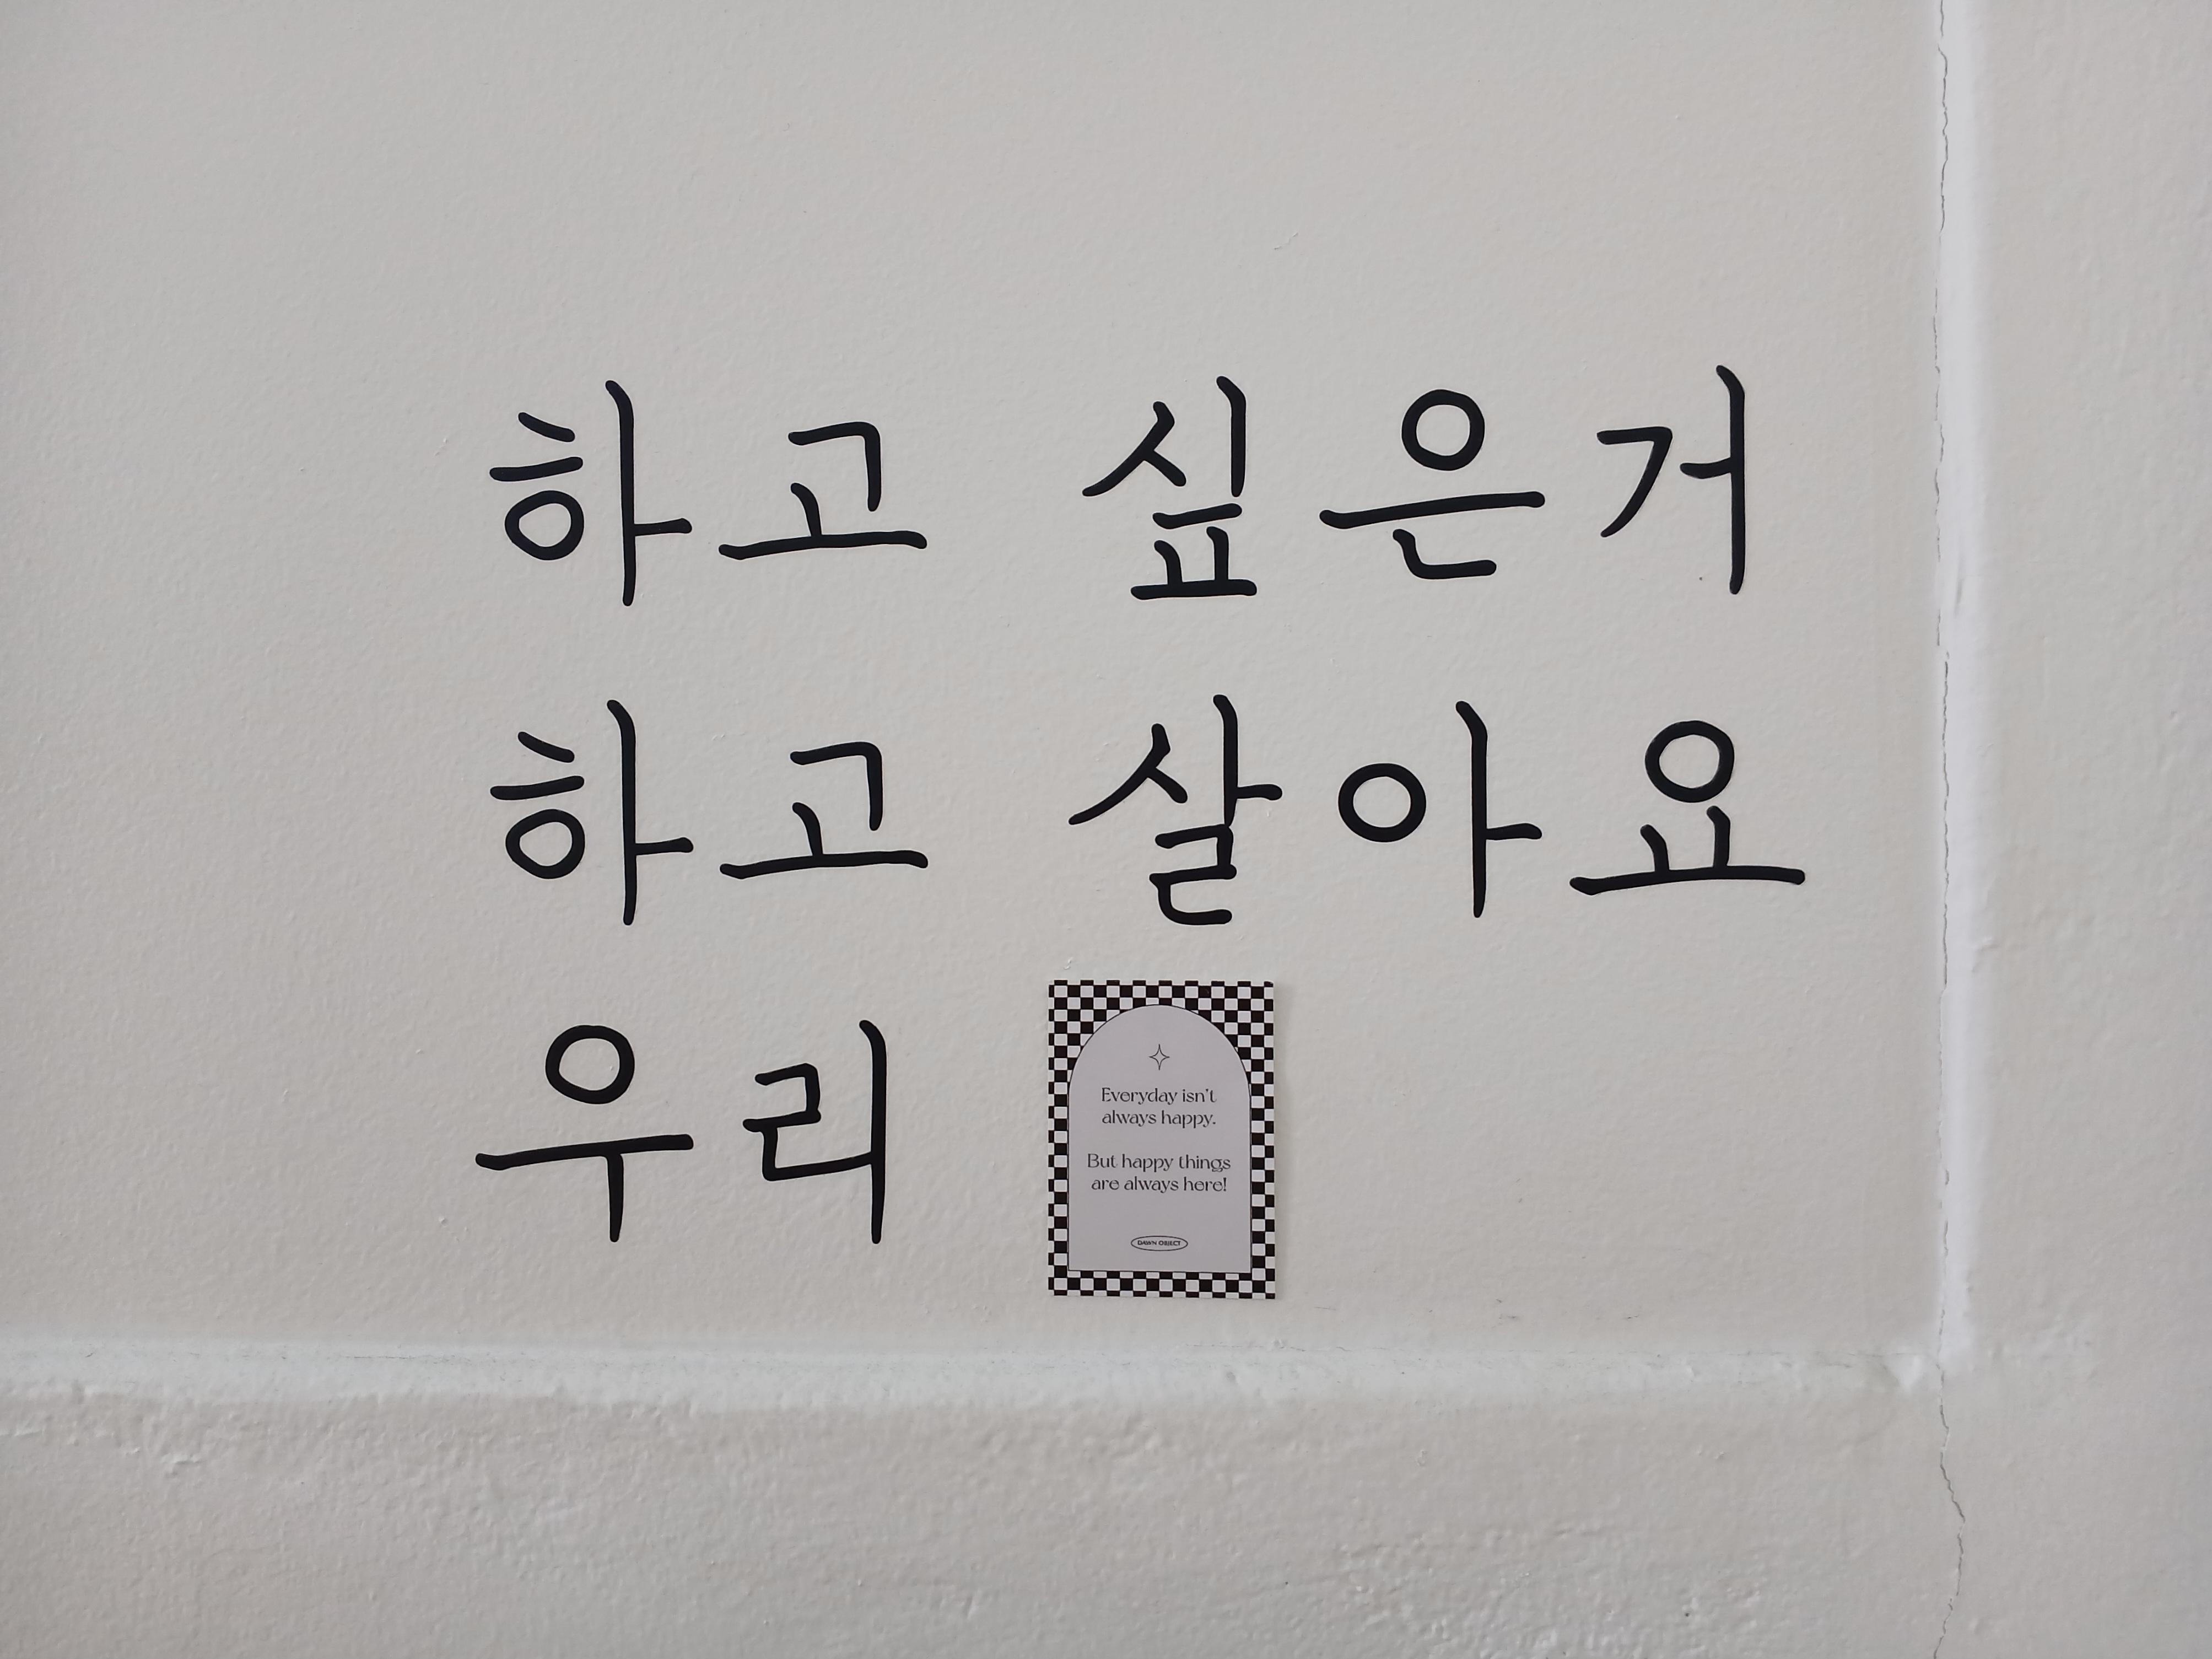 하고 싶은거
하고 살아요
우리
Everyday isn't
always happy.
But happy things
are always here!
DAWN OBJECT